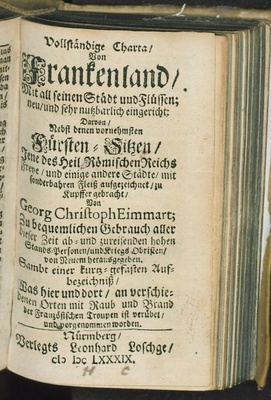 Vollständige Charta/
Von
Frankenland/
Mit all seinen Städt und Flüssen;
neu/ und sehr nutzbarlich eingericht;
Darvon/
Nebst denen vornehmsten
Fürsten-Sitzen/
Jene des Heil. Römischen Reichs
Freye/ und einige andere Städte/ mit
sonderbahren Fleiß aufgezeichnet/ zu
Kupffer gebracht/
Von
Georg Christoph Eimmart;
Zu bequemlichen Gebrauch aller
dieser Zeit ab- und zureisenden hohen
Stands-Personen/ und Kriegs Obristen/
von Neuem herausgegeben.
Sambt einer kurtz-gefasten Auf-
bezeichniß/
Was hier und dort/ an verschie-
denen Orten mit Raub und Brand
der Französischen Troupen ist verübet/
und vorgenommen worden.
Nürmberg/
Verlegts Leonhard Loschge/
cIɔ Iɔc LXXXIX.
H C